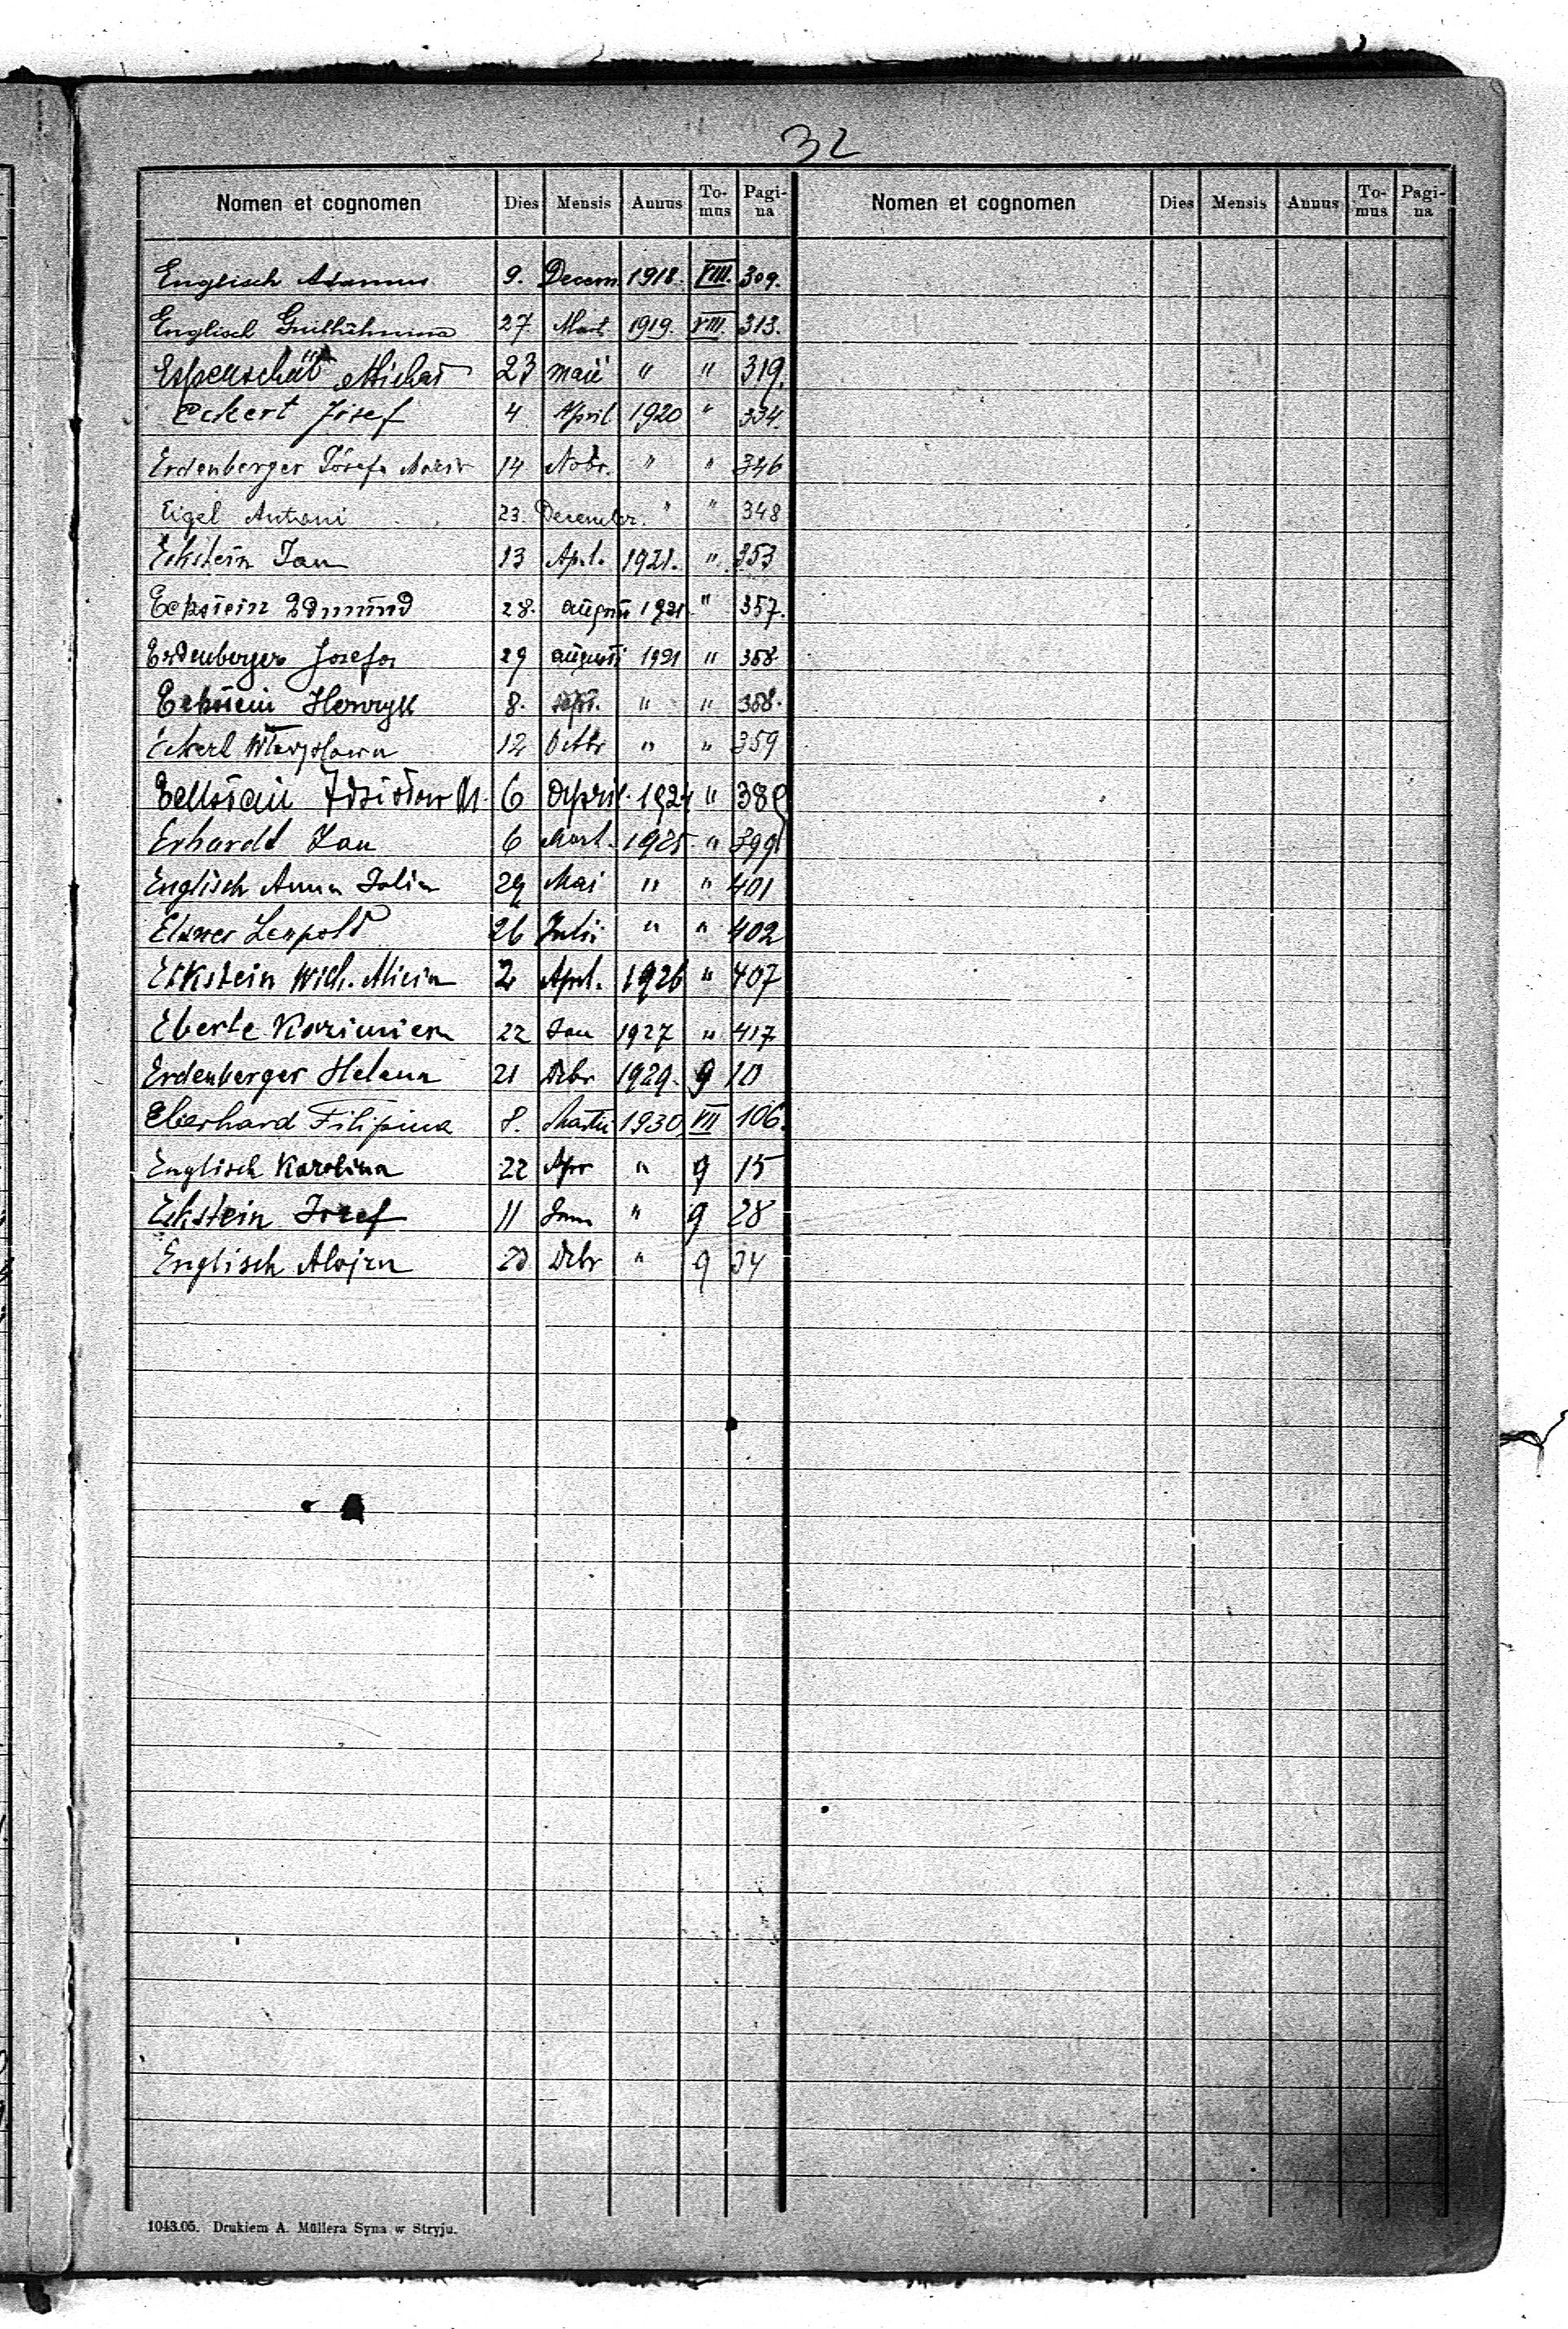 32
Nomen et cognomen Dies Mensis Annus To-mus Pagi-na Nomen et cognomen Dies Mensis Annus To-mus Pagi-na
Englisch Adamus 9. Decem 1918. VIII. 309.
Englisch 27 Mart 1919. VIII. 313.
Michał 23 maii " " 319.
Eckert Józef 4 April 1920 " 334.
Erdenberger Józefa Maria 14 Nobr. " " 346
Eigel Antoni 23. December. " " 348
Eckstein Jan 13 Apl. 1921. " 353
Eckstein Edmund 28. augusti 1921 " 357.
Erdenberger Josefa 29 augusti 1921 " 358
Eckstein Henryk 8. Sept. " " 358.
Eckert 12 Octbr " " 359
Zdzisław M. 6 April. 1924 " 389
Erhardt Jan 6 Mart. 1925 " 399
Englisch Anna Julia 29 Mai " " 401
Elsner Leopold 26 Julii " " 402
Eckstein Wilh. Alicia 2 Apl. 1926 " 407
Eberle Kazimiera 22 Jan 1927 " 417
Erdenberger Helena 21 Dcbr 1929. 9 10
Eberhard Filipina 8. Martii 1930 VII 106.
Englisch Karolina 22 Apr " 9 15
Eckstein Józef 11 " 9 28
Englisch Alojza 20 Dcbr " 9 34
1043.05. Drukiem A. Müllera Syna w Stryju.